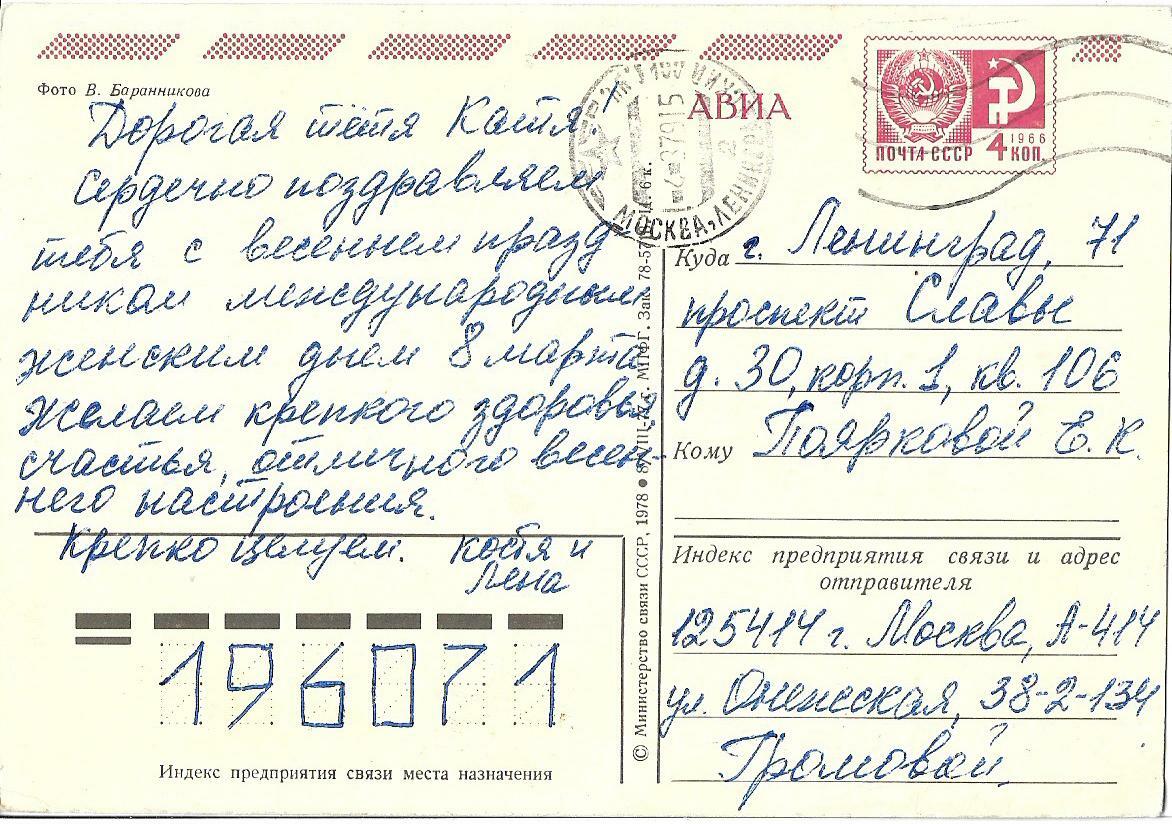 Фото В. Баранникова
АВИА
ПОЧТА СССР 4 КОП.
1966
МОСКВА, ЛЕНИНГРАД
Дорогая тётя Катя!
Сердечно поздравляем
тебя с весенним празд
ником международным
женским днем 8 марта
Желаем крепкого здоровья,
счастья, отличного весен-
него настроения.
Крепко целуем. Костя и
Лена
196071
Индекс предприятия связи места назначения
© Министерство связи СССР, 1978 •
МПФГ. Зак. 78-5
Ц. 6 к.
Куда г. Ленинград, 71
проспект Славы
д. 30, корп. 1, кв. 106
Кому Поярковой Е. К.
Индекс предприятия связи и адрес
отправителя
125414 г. Москва, А-414
ул. Онежская, 38-2-134
Громовой